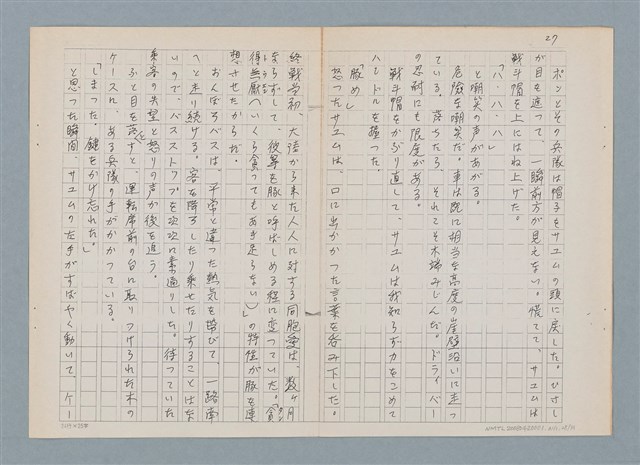 27
ポンとその兵隊は帽子をサユムの頭に戻した。ひさし
が目を遮って、一瞬前方が見えない。慌てて、サユムは
戦斗帽を上にはね上げた。
「ハ・ハ・ハ」
と嘲笑の声があがる。
危険な嘲笑だ。車は既に相当な高度の崖壁沿いに走っ
ている。落ちたら、それこそ木端みじんだ。ドライバー
の忍耐にも限度がある。
戦斗帽をかぶり直して、サユムは我知らず力をこめて
ハンドルを握った。
「豚め」
怒ったサユムは、口に出かかった言葉を呑み下した。
終戦当初、大陸から来た人人に対する同胞愛は、数ヶ月
ならずして、彼等を豚と呼ばしめる程に変っていた。「貪
得無厭(いくら貪ってもあき足らない)」の特性が豚を連
想させたからだ。
おんぼろバスは、平常と違った熱気を帯びて、一路南
へと走り続ける。客を降ろしたり乗せたりすることはな
いので、バスストップを次次に素通りした。待っていた
乗客の失望と怒りの声が後を追う。
ふと目を落すと、運転席前の台に取りつけられた木の
ケースに、ある兵隊の手がかかっている。
「しまった。鍵をかけ忘れた」
と思った瞬間、サユムの左手がすばやく動いて、ケー